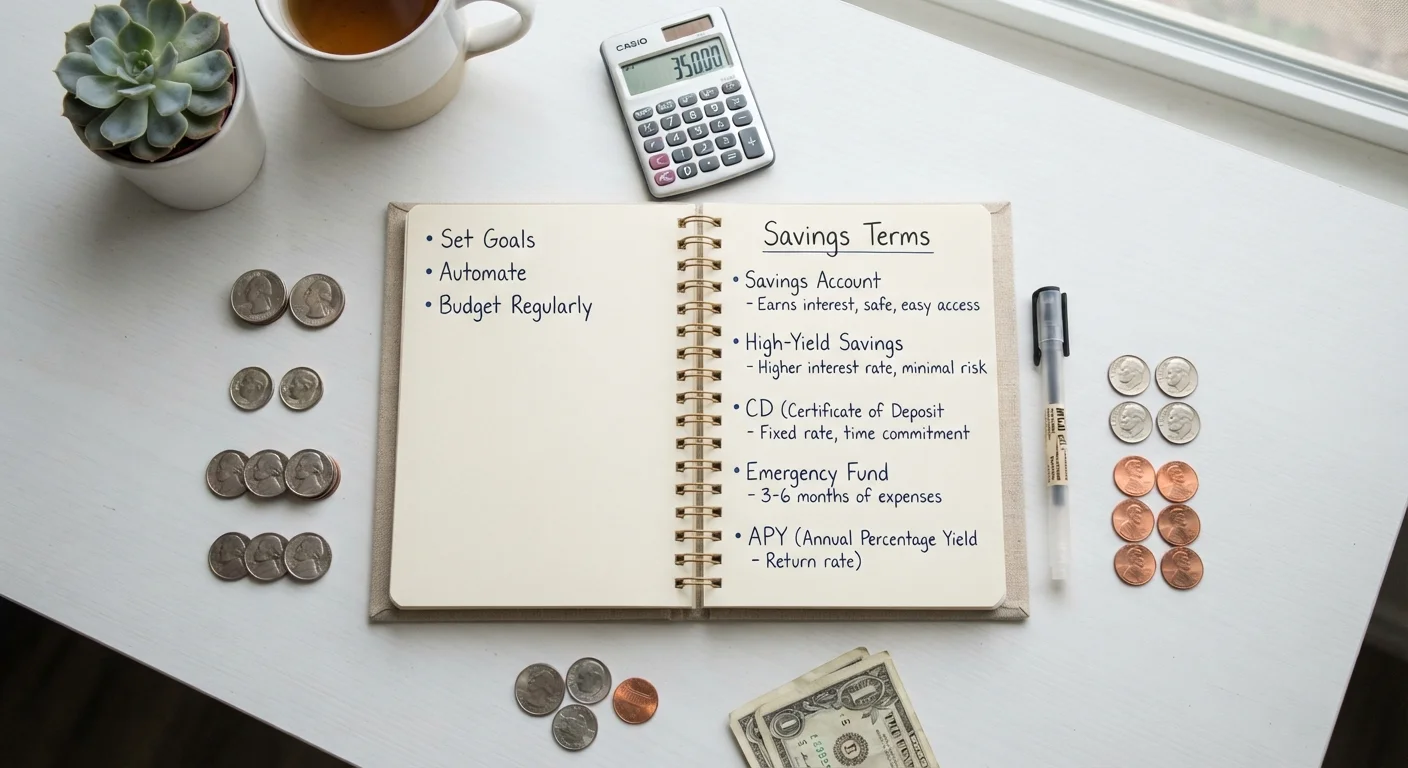 CASIO
35000
• Set Goals
• Automate
• Budget Regularly
Savings Terms
• Savings Account
- Earns interest, safe, easy access
• High-Yield Savings
- Higher interest rate, minimal risk
• CD (Certificate of Deposit
- Fixed rate, time commitment
• Emergency Fund
- 3-6 months of expenses
• APY (Annual Percentage Yield
- Return rate)
1